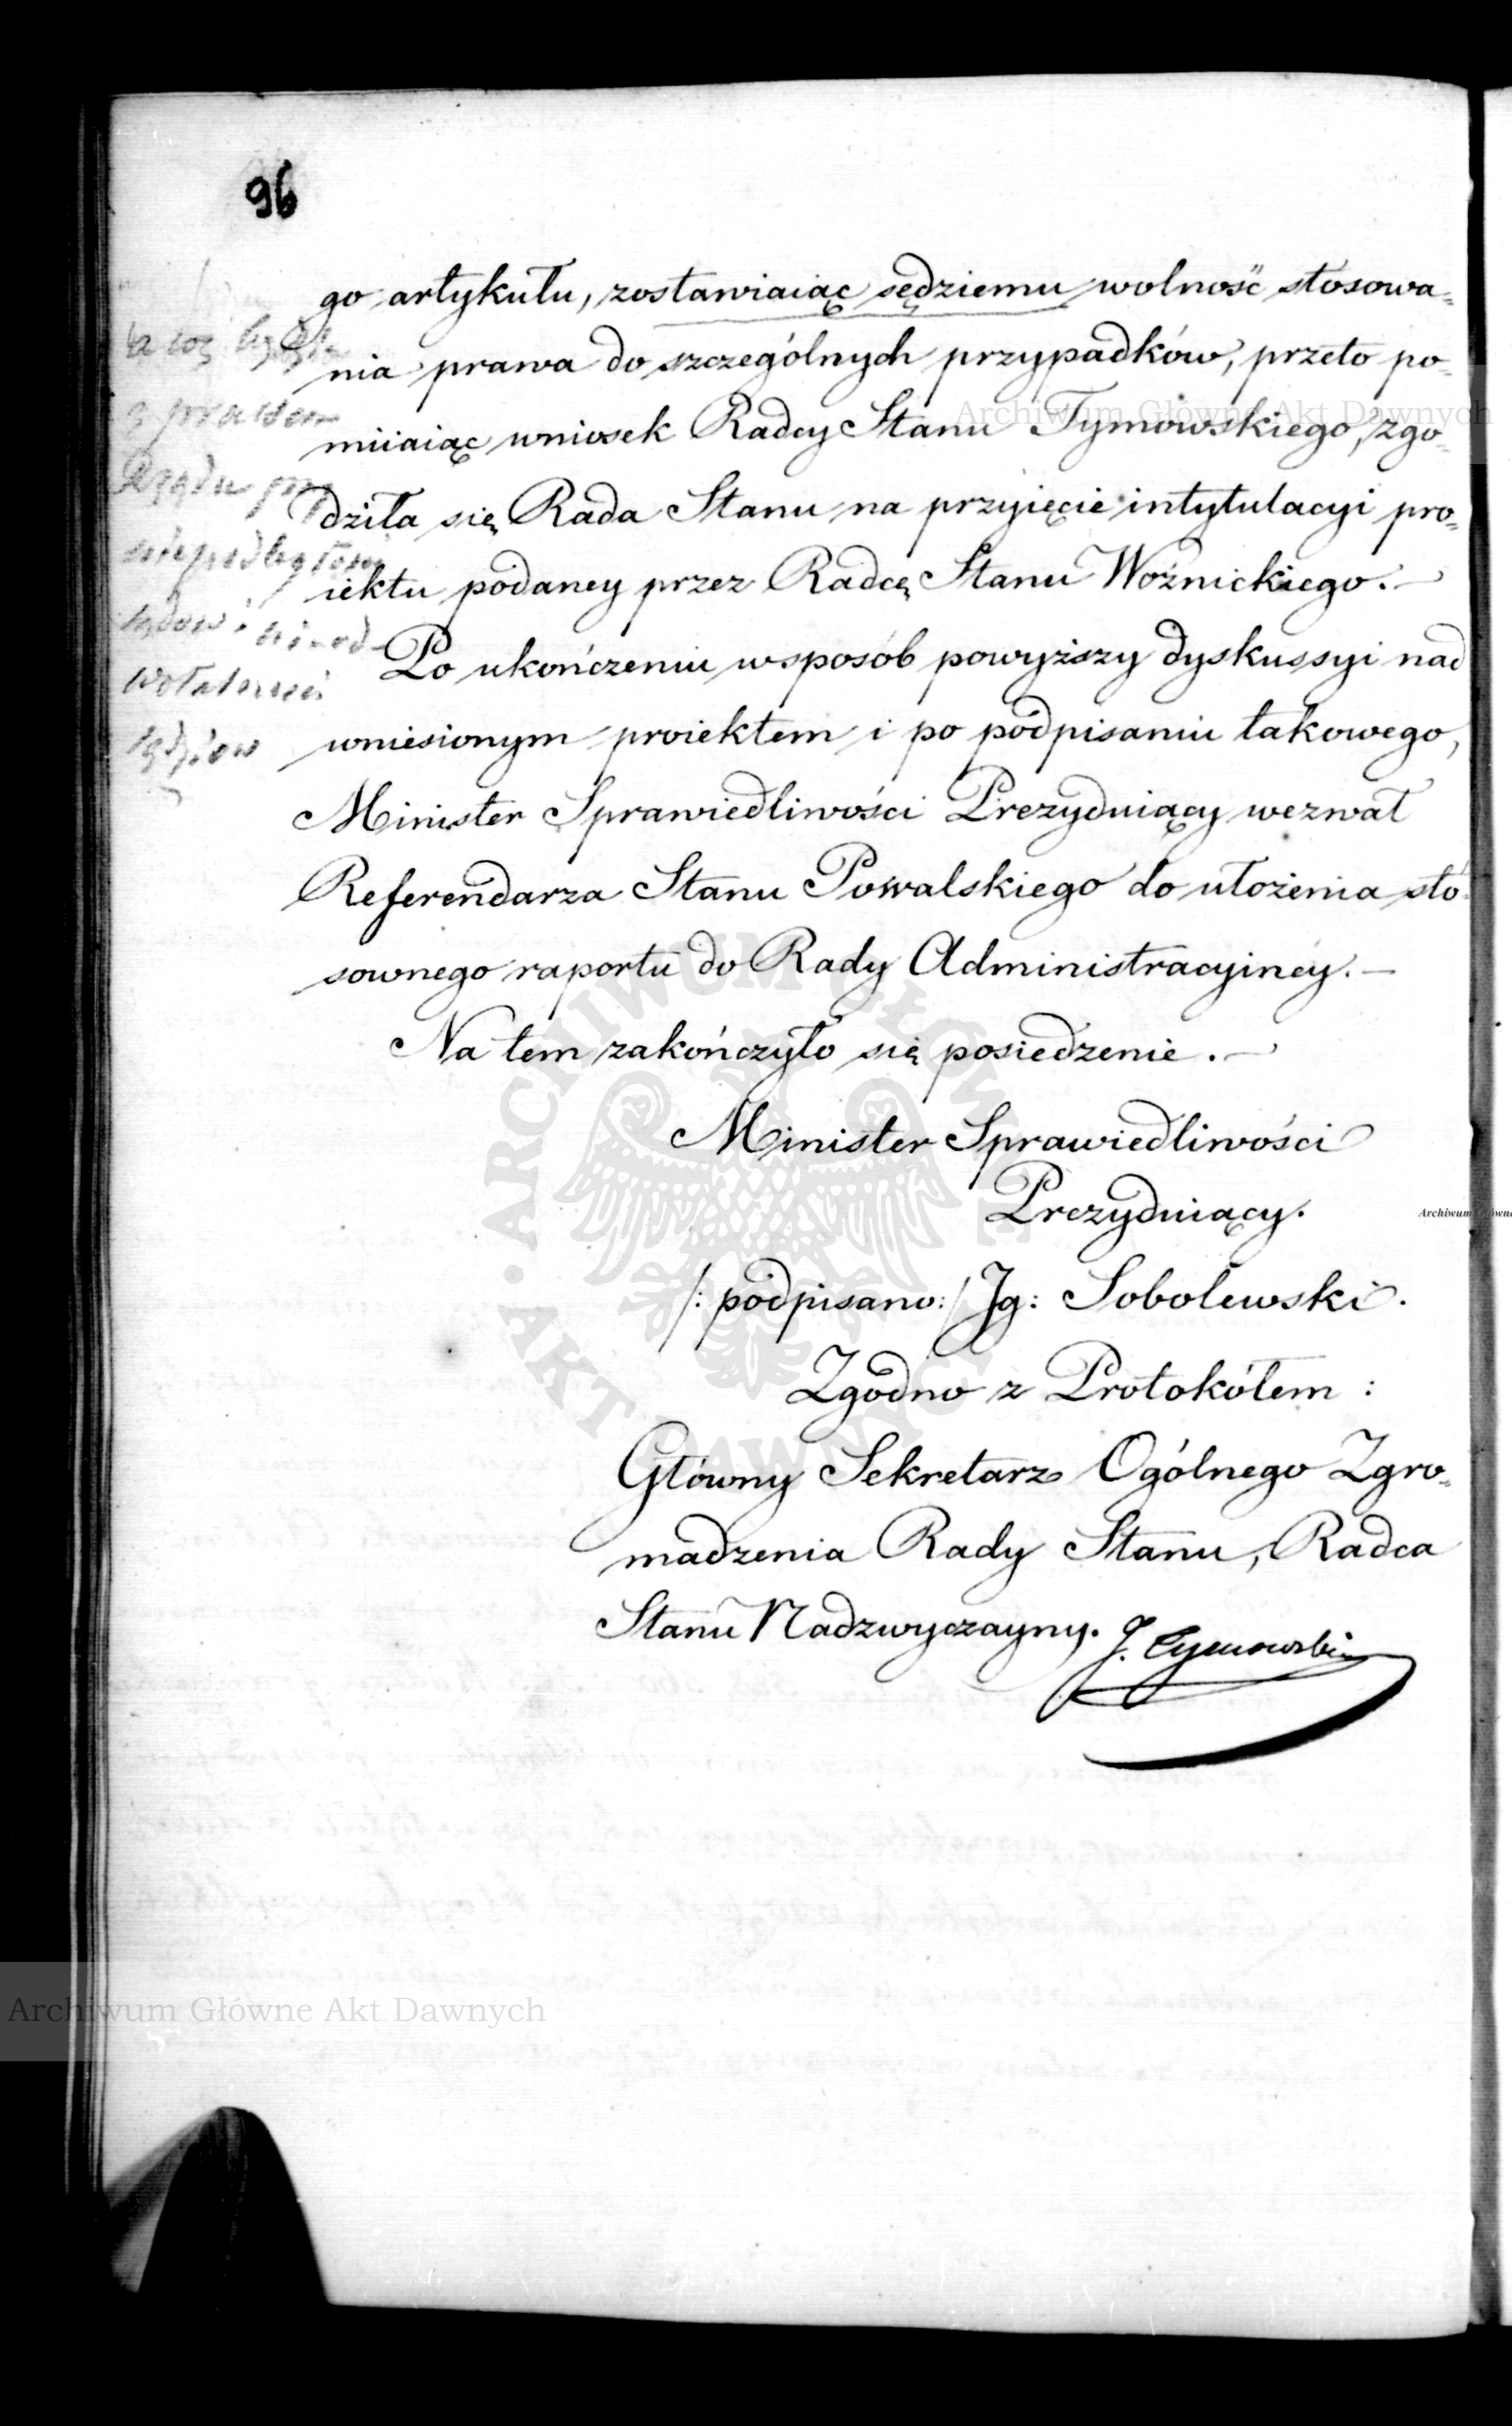 96
go artykułu, zostawiaiąc sędziemu wolność stosowa=
nia prawa do szczególnych przypadków, przeto po=
miiaiąc wniosek Radcy Stanu Tymowskiego, zgo=
dziła się Rada Stanu na przyięcie intytulacyi pro=
iektu podaney przez Radcę Stanu Woźnickiego. —
Po ukończeniu wsposób powyższy dyskussyi nad
wniesionym proiektem i po podpisaniu takowego,
Minister Sprawiedliwości Prezyduiący wezwał
Referendarza Stanu Powalskiego do ułożenia sto=
sownego raportu do Rady Administracyiney. —
Na tem zakończyło się posiedzenie. —
Minister Sprawiedliwości
Prezyduiący.
/: podpisano: / Ig: Sobolewski.
Zgodno z Protokółem :
Główny Sekretarz Ogólnego Zgro=
madzenia Rady Stanu, Radca
Stanu Nadzwyczayny. J. Tymowski
a coż będzie
z prawem
Rządu
niepodległości
sądów i nieod
wołalności
sędziow
Archiwum Główne Akt Dawnych
Archiwum Główne Akt Dawnych
Archiwum Główne
ARCHIWUM GŁÓWNE AKT DAWNYCH